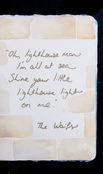 "Oh, lighthouse man
I'm all at sea.
Shine your little
lighthouse light
on me."
The Waifs